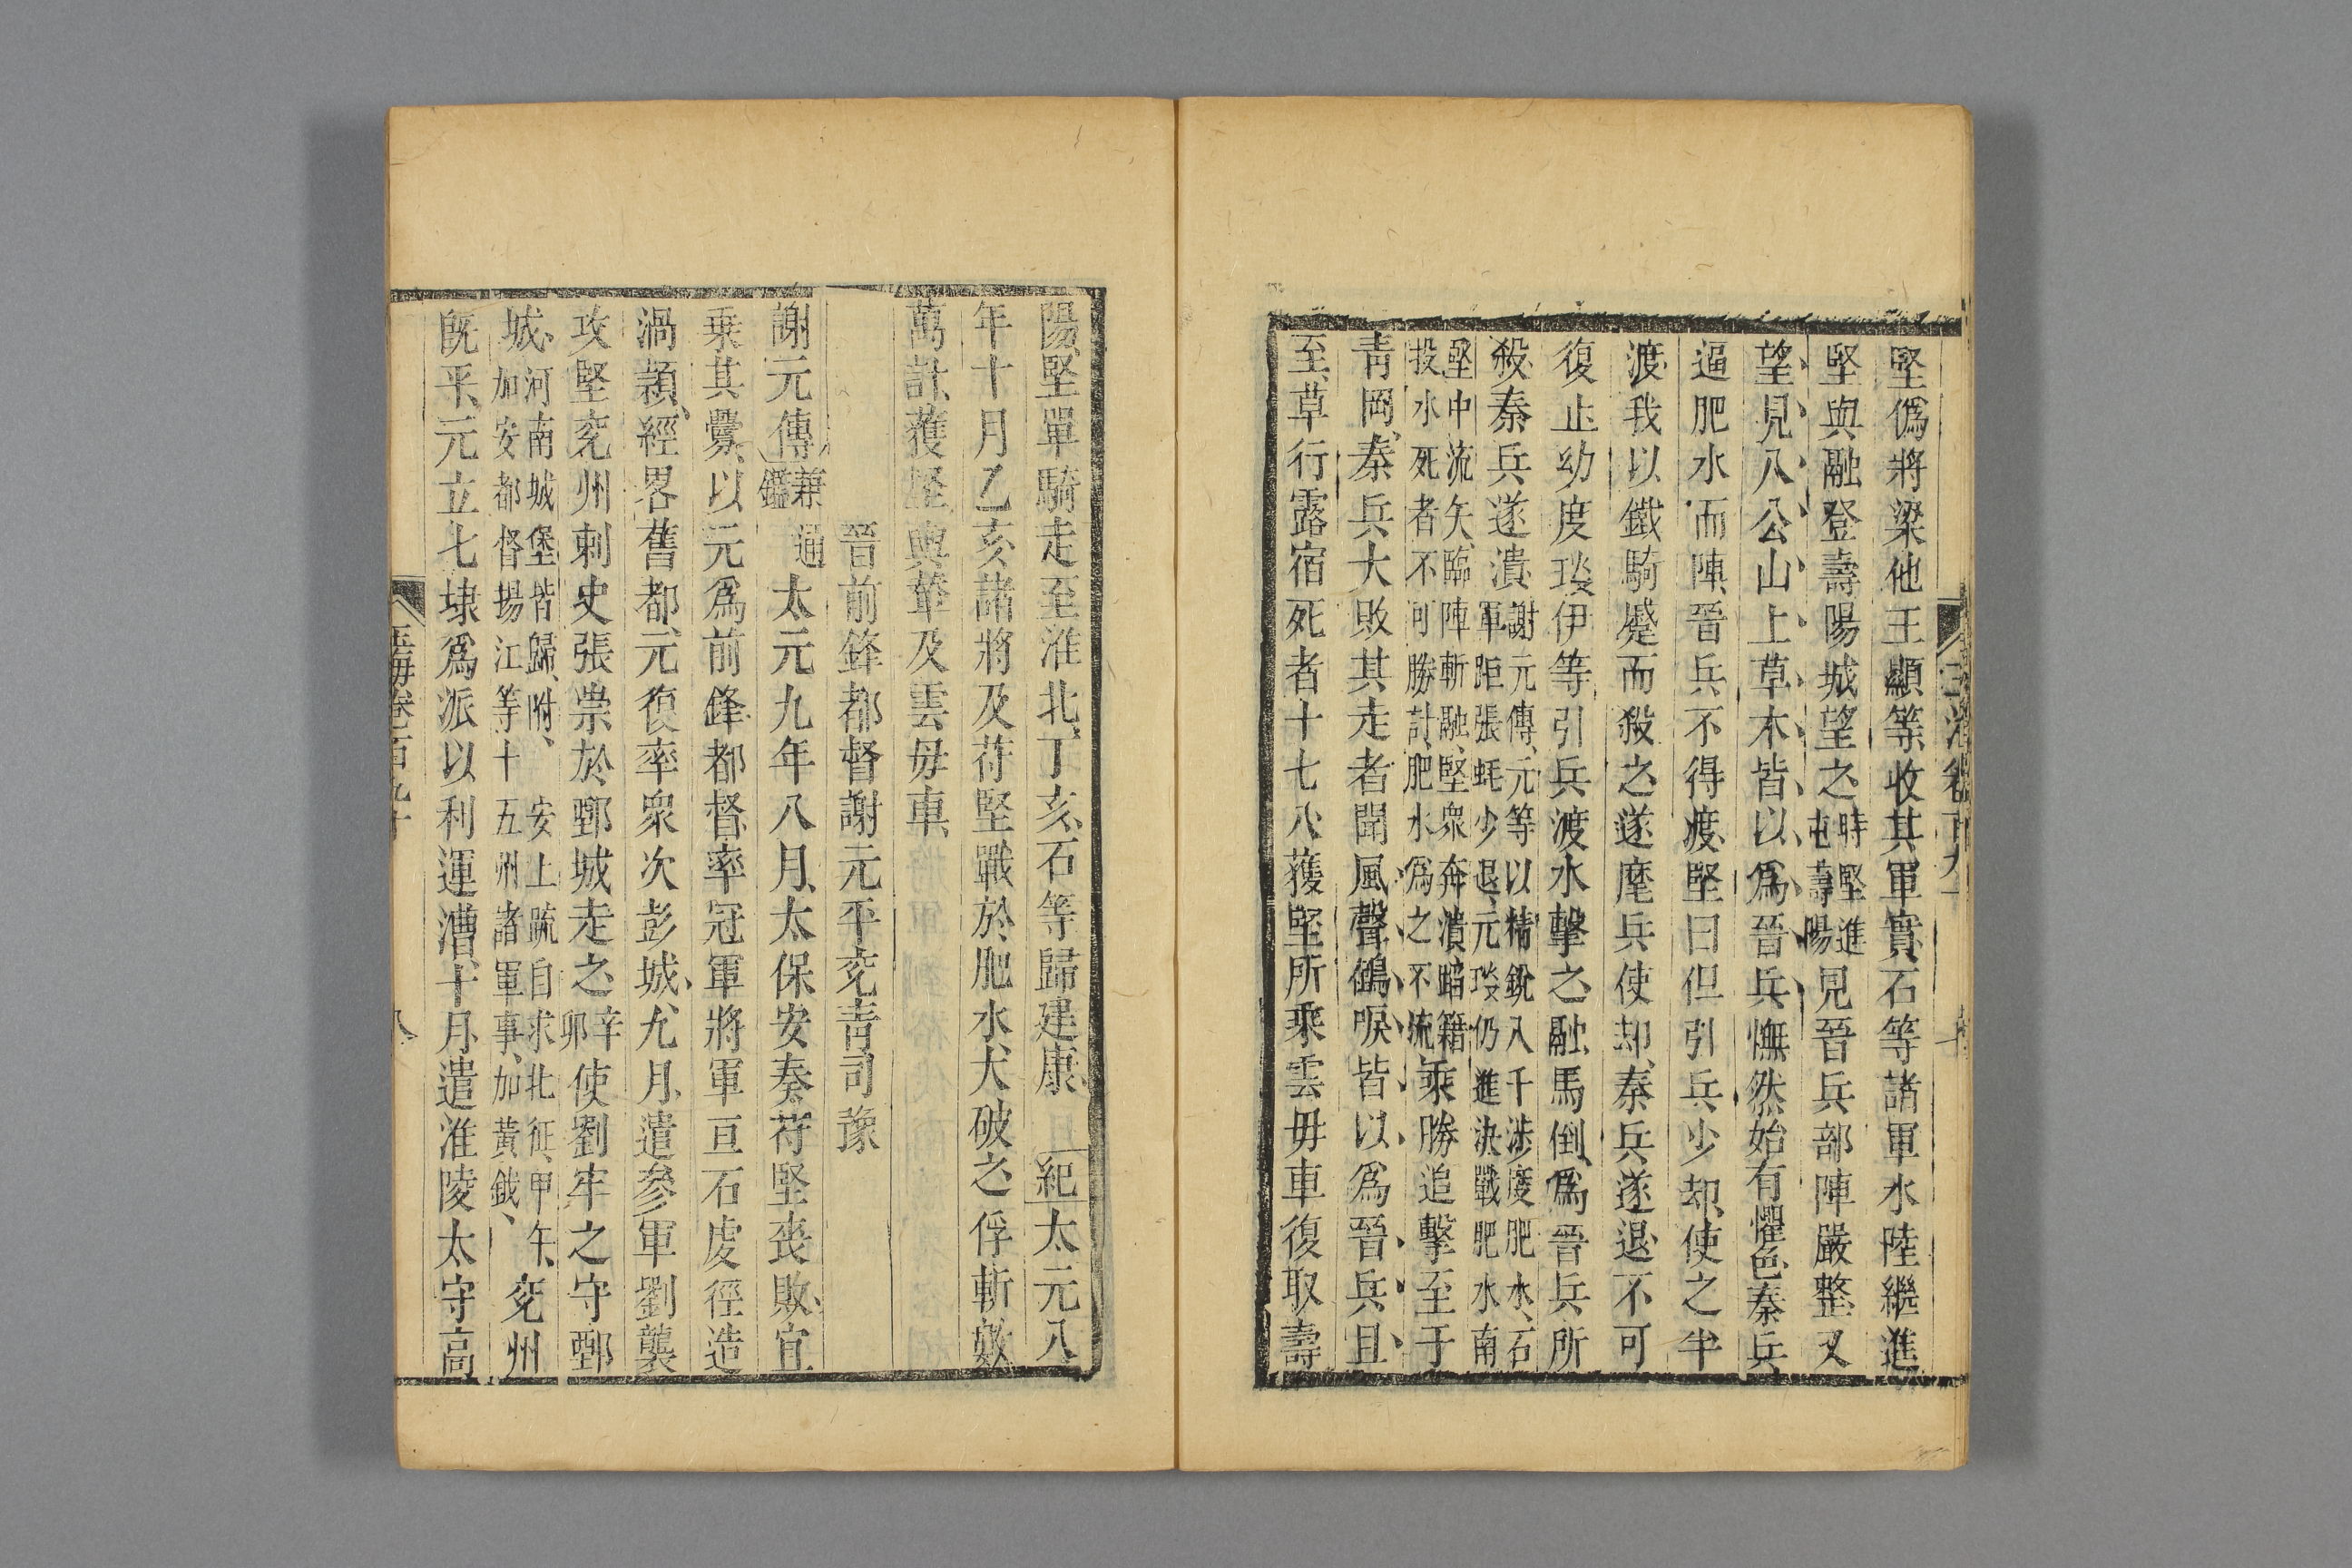 堅僞將梁他王顯等收其軍實石等諸軍水陸繼進
堅與融登壽陽城望之時堅進屯壽陽見晉兵部陣嚴整又
望見八公山上草木皆以爲晉兵憮然始有懼色秦兵
逼肥水而陣晉兵不得渡堅曰但引兵少却使之半
渡我以鐵騎蹙而殺之遂麾兵使却秦兵遂退不可
復止幼度琰伊等引兵渡水擊之融馬倒爲晉兵所
殺秦兵遂潰謝元傳元等以精銳八千涉度肥水石軍距張蚝少退元琰仍進決戰肥水南
堅中流矢臨陣斬融堅衆奔潰蹈籍投水死者不可勝計肥水爲之不流乘勝追擊至于
青岡秦兵大敗其走者聞風聲鶴唳皆以爲晉兵且
至草行露宿死者十七八獲堅所乘雲毋車復取壽
陽堅單騎走至淮北丁亥石等歸建康 紀太元八
年十月乙亥諸將及苻堅戰於肥水大破之俘斬數
萬計獲堅輿輦及雲毋車
晉前鋒都督謝元平兖青司豫
謝元傳兼通鑑太元九年八月太保安奏苻堅喪敗宜
乗其釁以元爲前鋒都督率冠軍將軍亘石虔徑造
渦潁經畧舊都元復率衆次彭城九月遣參軍劉襲
攻堅兖州刺史張崇於鄄城走之辛卯使劉牢之守鄄
城河南城堡皆歸附安上疏自求北征甲午加安都督揚江等十五州諸軍事加黃鉞兖州
旣平元立七埭爲派以利運漕十月遣淮陵太守高
玉海卷百九十
八